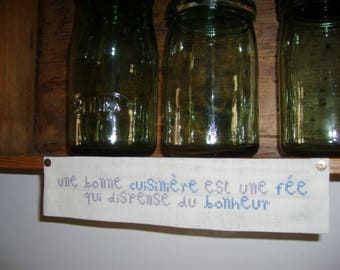 une bonne cuisinière est une fée
qui dispense du bonheur